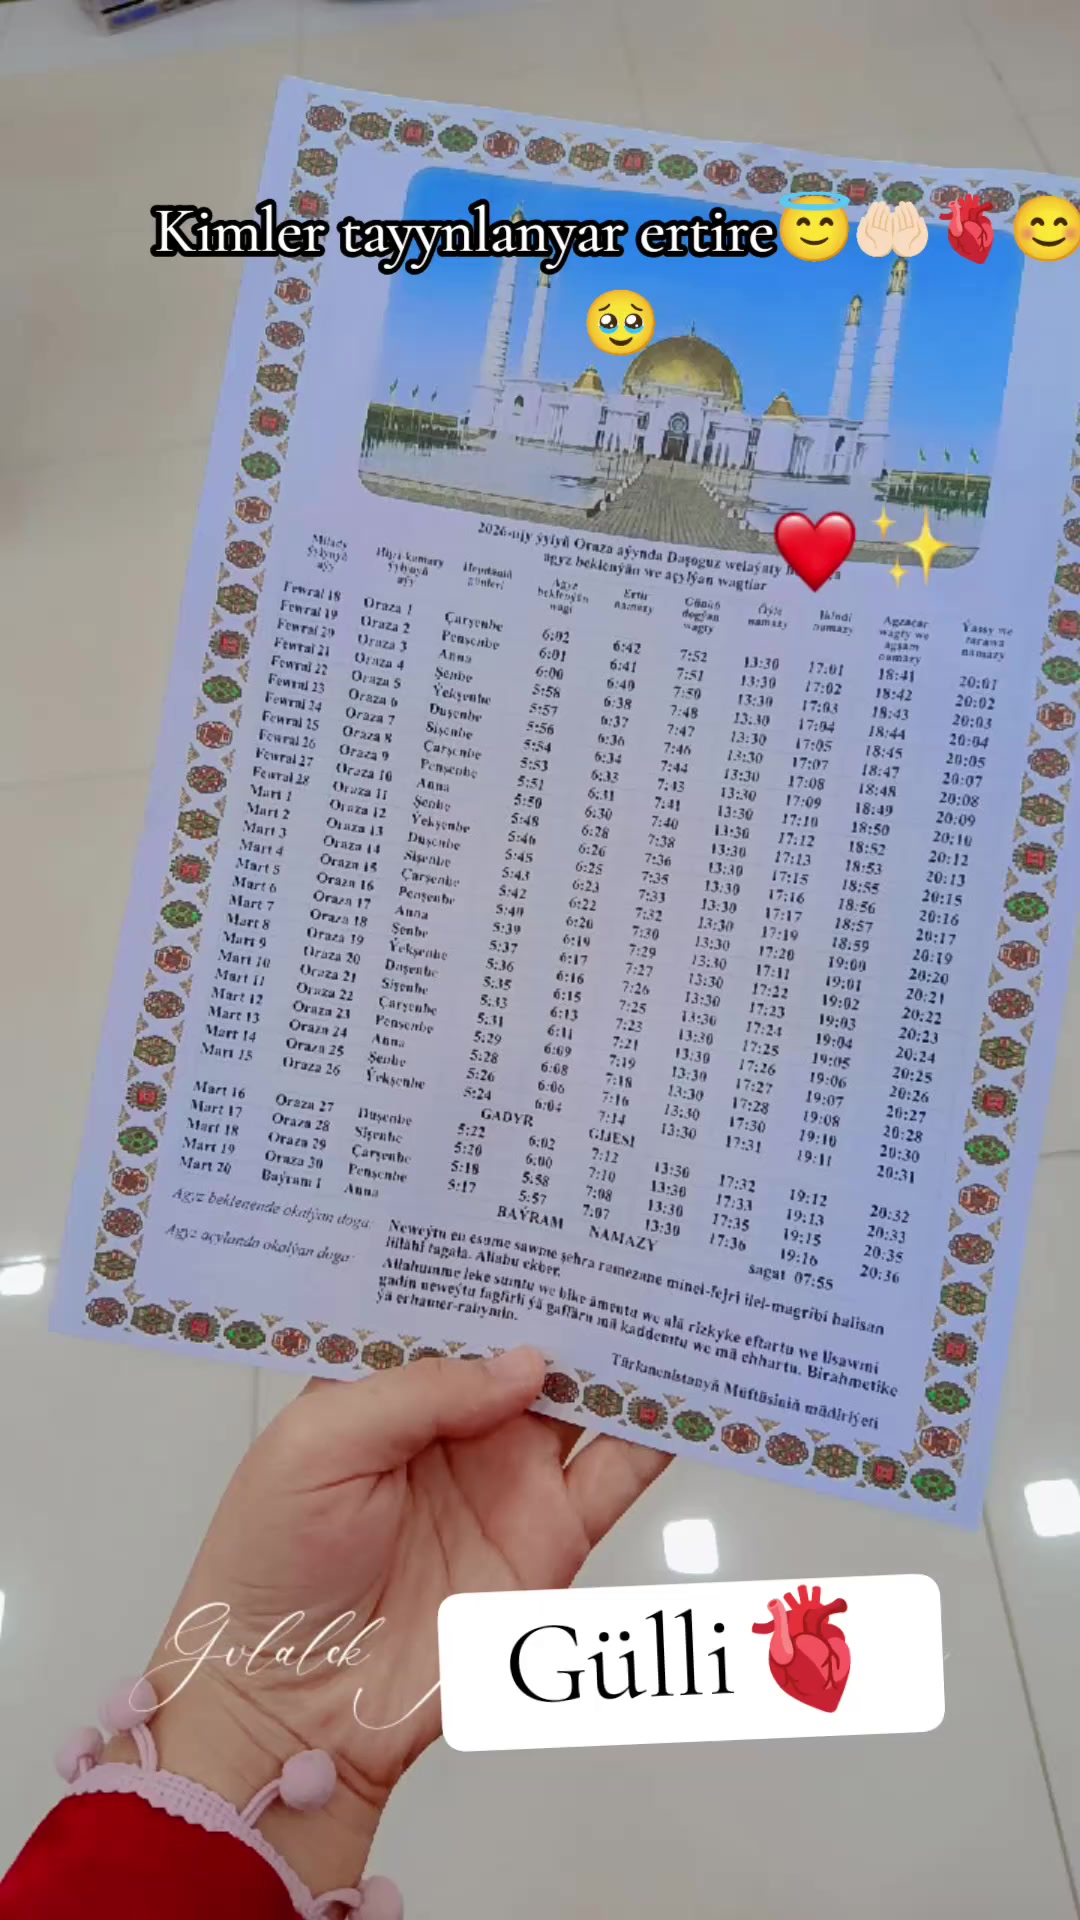 Kimler tayynlanyar ertire😇🤲🏻🫀😊
🥹
❤️✨
2026-njy ýylyň Oraza aýynda Daşoguz welaýaty
agyz beklenýän we açylýan wagtlar
Milady ýylynyň aýy Hijri-kamary ýylynyň aýy Hepdäniň günleri Agyz beklenýän wagt Ertir namazy Günüň dogýan wagty Öýle namazy Ikindi namazy Agzaçar wagty we agşam namazy Ýassy we tarawa namazy
Fewral 18 Oraza 1 Çarşenbe 6:02 6:42 7:52 13:30 17:01 18:41 20:01
Fewral 19 Oraza 2 Penşenbe 6:01 6:41 7:51 13:30 17:02 18:42 20:02
Fewral 20 Oraza 3 Anna 6:00 6:40 7:50 13:30 17:03 18:43 20:03
Fewral 21 Oraza 4 Şenbe 5:58 6:38 7:48 13:30 17:04 18:44 20:04
Fewral 22 Oraza 5 Ýekşenbe 5:57 6:37 7:47 13:30 17:05 18:45 20:05
Fewral 23 Oraza 6 Duşenbe 5:56 6:36 7:46 13:30 17:07 18:47 20:07
Fewral 24 Oraza 7 Sişenbe 5:54 6:34 7:44 13:30 17:08 18:48 20:08
Fewral 25 Oraza 8 Çarşenbe 5:53 6:33 7:43 13:30 17:09 18:49 20:09
Fewral 26 Oraza 9 Penşenbe 5:51 6:31 7:41 13:30 17:10 18:50 20:10
Fewral 27 Oraza 10 Anna 5:50 6:30 7:40 13:30 17:12 18:52 20:12
Fewral 28 Oraza 11 Şenbe 5:48 6:28 7:38 13:30 17:13 18:53 20:13
Mart 1 Oraza 12 Ýekşenbe 5:46 6:26 7:36 13:30 17:15 18:55 20:15
Mart 2 Oraza 13 Duşenbe 5:45 6:25 7:35 13:30 17:16 18:56 20:16
Mart 3 Oraza 14 Sişenbe 5:43 6:23 7:33 13:30 17:17 18:57 20:17
Mart 4 Oraza 15 Çarşenbe 5:42 6:22 7:32 13:30 17:19 18:59 20:19
Mart 5 Oraza 16 Penşenbe 5:40 6:20 7:30 13:30 17:20 19:00 20:20
Mart 6 Oraza 17 Anna 5:39 6:19 7:29 13:30 17:11 19:01 20:21
Mart 7 Oraza 18 Şenbe 5:37 6:17 7:27 13:30 17:22 19:02 20:22
Mart 8 Oraza 19 Ýekşenbe 5:36 6:16 7:26 13:30 17:23 19:03 20:23
Mart 9 Oraza 20 Duşenbe 5:35 6:15 7:25 13:30 17:24 19:04 20:24
Mart 10 Oraza 21 Sişenbe 5:33 6:13 7:23 13:30 17:25 19:05 20:25
Mart 11 Oraza 22 Çarşenbe 5:31 6:11 7:21 13:30 17:26 19:06 20:26
Mart 12 Oraza 23 Penşenbe 5:29 6:09 7:19 13:30 17:27 19:07 20:27
Mart 13 Oraza 24 Anna 5:28 6:08 7:18 13:30 17:28 19:08 20:28
Mart 14 Oraza 25 Şenbe 5:26 6:06 7:16 13:30 17:30 19:10 20:30
Mart 15 Oraza 26 Ýekşenbe 5:24 6:04 7:14 13:30 17:31 19:11 20:31
GADYR GIJESI
Mart 16 Oraza 27 Duşenbe 5:22 6:02 7:12 13:30 17:32 19:12 20:32
Mart 17 Oraza 28 Sişenbe 5:20 6:00 7:10 13:30 17:33 19:13 20:33
Mart 18 Oraza 29 Çarşenbe 5:18 5:58 7:08 13:30 17:35 19:15 20:35
Mart 19 Oraza 30 Penşenbe 5:17 5:57 7:07 13:30 17:36 19:16 20:36
Mart 20 Baýram 1 Anna BAÝRAM NAMAZY sagat 07:55
Agyz beklenende okalýan doga: Neweýtu en esume sawme şehra ramezane minel-fejri ilel-magribi halisan
lillähi tagala. Allahu ekber.
Agyz açylanda okalýan doga: Allahumme leke sumtu we bike ämentu we alä rizkyke eftartu we lisawmi
gadin neweýtu fagfirli ýä gaffäru mä kaddemtu we mä ehhartu. Birahmetike
ýä erhamer-rahymin.
Türkmenistanyň Müftüsiniň müdiriýeti
Gulalek
Gülli 🫀